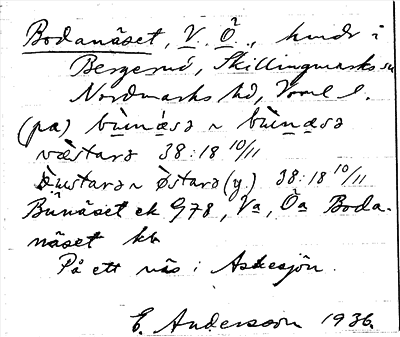 Bodanäset, V. Ö., hmdr i
Bergerud, Skillingmarks sn
Nordmarks hd, Värml. l.
(pa) bùnǽsə ~ bùnæsə
væstarə 38:18 10/11
östarə (y.) 38:18 10/11
Bunäset ek 978, Va, Öa Boda-
näset kb
På ett näs i Askesjön.
E. Andersson 1936.